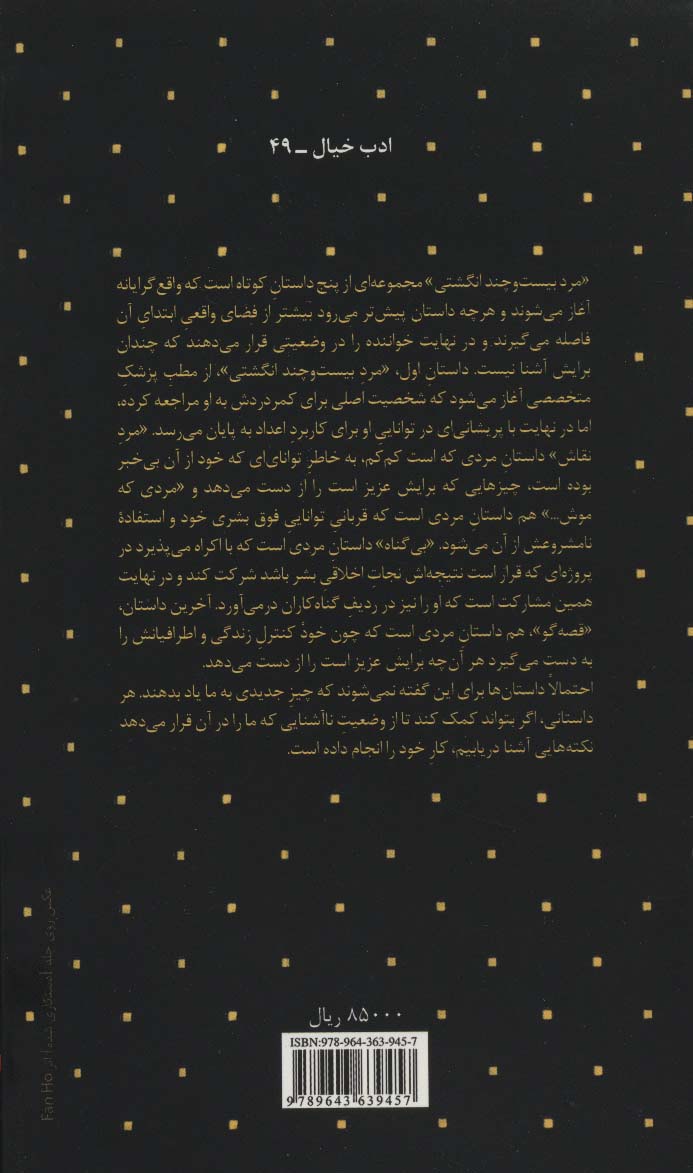 ادب خیال ـ ۴۹
«مرد بیست‌وچند انگشتی» مجموعه‌ای از پنج داستانِ کوتاه است که واقع‌گرایانه
آغاز می‌شوند و هرچه داستان پیش‌تر می‌رود بیشتر از فضای واقعیِ ابتدایِ آن
فاصله می‌گیرند و در نهایت خواننده را در وضعیتی قرار می‌دهند که چندان
برایش آشنا نیست. داستانِ اول، «مردِ بیست‌وچند انگشتی»، از مطبِ پزشکِ
متخصصی آغاز می‌شود که شخصیت اصلی برای کمردردش به او مراجعه کرده،
اما در نهایت با پریشانی‌ای در توانایی او برای کاربردِ اعداد به پایان می‌رسد. «مردِ
نقاش» داستانِ مردی که است کم‌کم، به خاطرِ توانای‌ای که خود از آن بی‌خبر
بوده است، چیزهایی که برایش عزیز است را از دست می‌دهد و «مردی که
موش...» هم داستانِ مردی است که قربانیِ تواناییِ فوق بشری خود و استفادهٔ
نامشروعش از آن می‌شود. «بی‌گناه» داستان مردی است که با اکراه می‌پذیرد در
پروژه‌ای که قرار است نتیجه‌اش نجاتِ اخلاقیِ بشر باشد شرکت کند و در نهایت
همین مشارکت است که او را نیز در ردیفِ گناه‌کاران درمی‌آورد. آخرین داستان،
«قصه‌گو»، هم داستانِ مردی است که چون خودْ کنترلِ زندگی و اطرافیانش را
به دست می‌گیرد هر آن‌چه برایش عزیز است را از دست می‌دهد.
احتمالاً داستان‌ها برای این گفته نمی‌شوند که چیزِ جدیدی به ما یاد بدهند. هر
داستانی، اگر بتواند کمک کند تا از وضعیتِ ناآشنایی که ما را در آن قرار می‌دهد
نکته‌هایی آشنا دریابیم، کارِ خود را انجام داده است.
عکس روی جلد [دستکاری شده] اثر Fan Ho
۸۵۰۰۰ ریال
ISBN:978-964-363-945-7
9 789643 639457